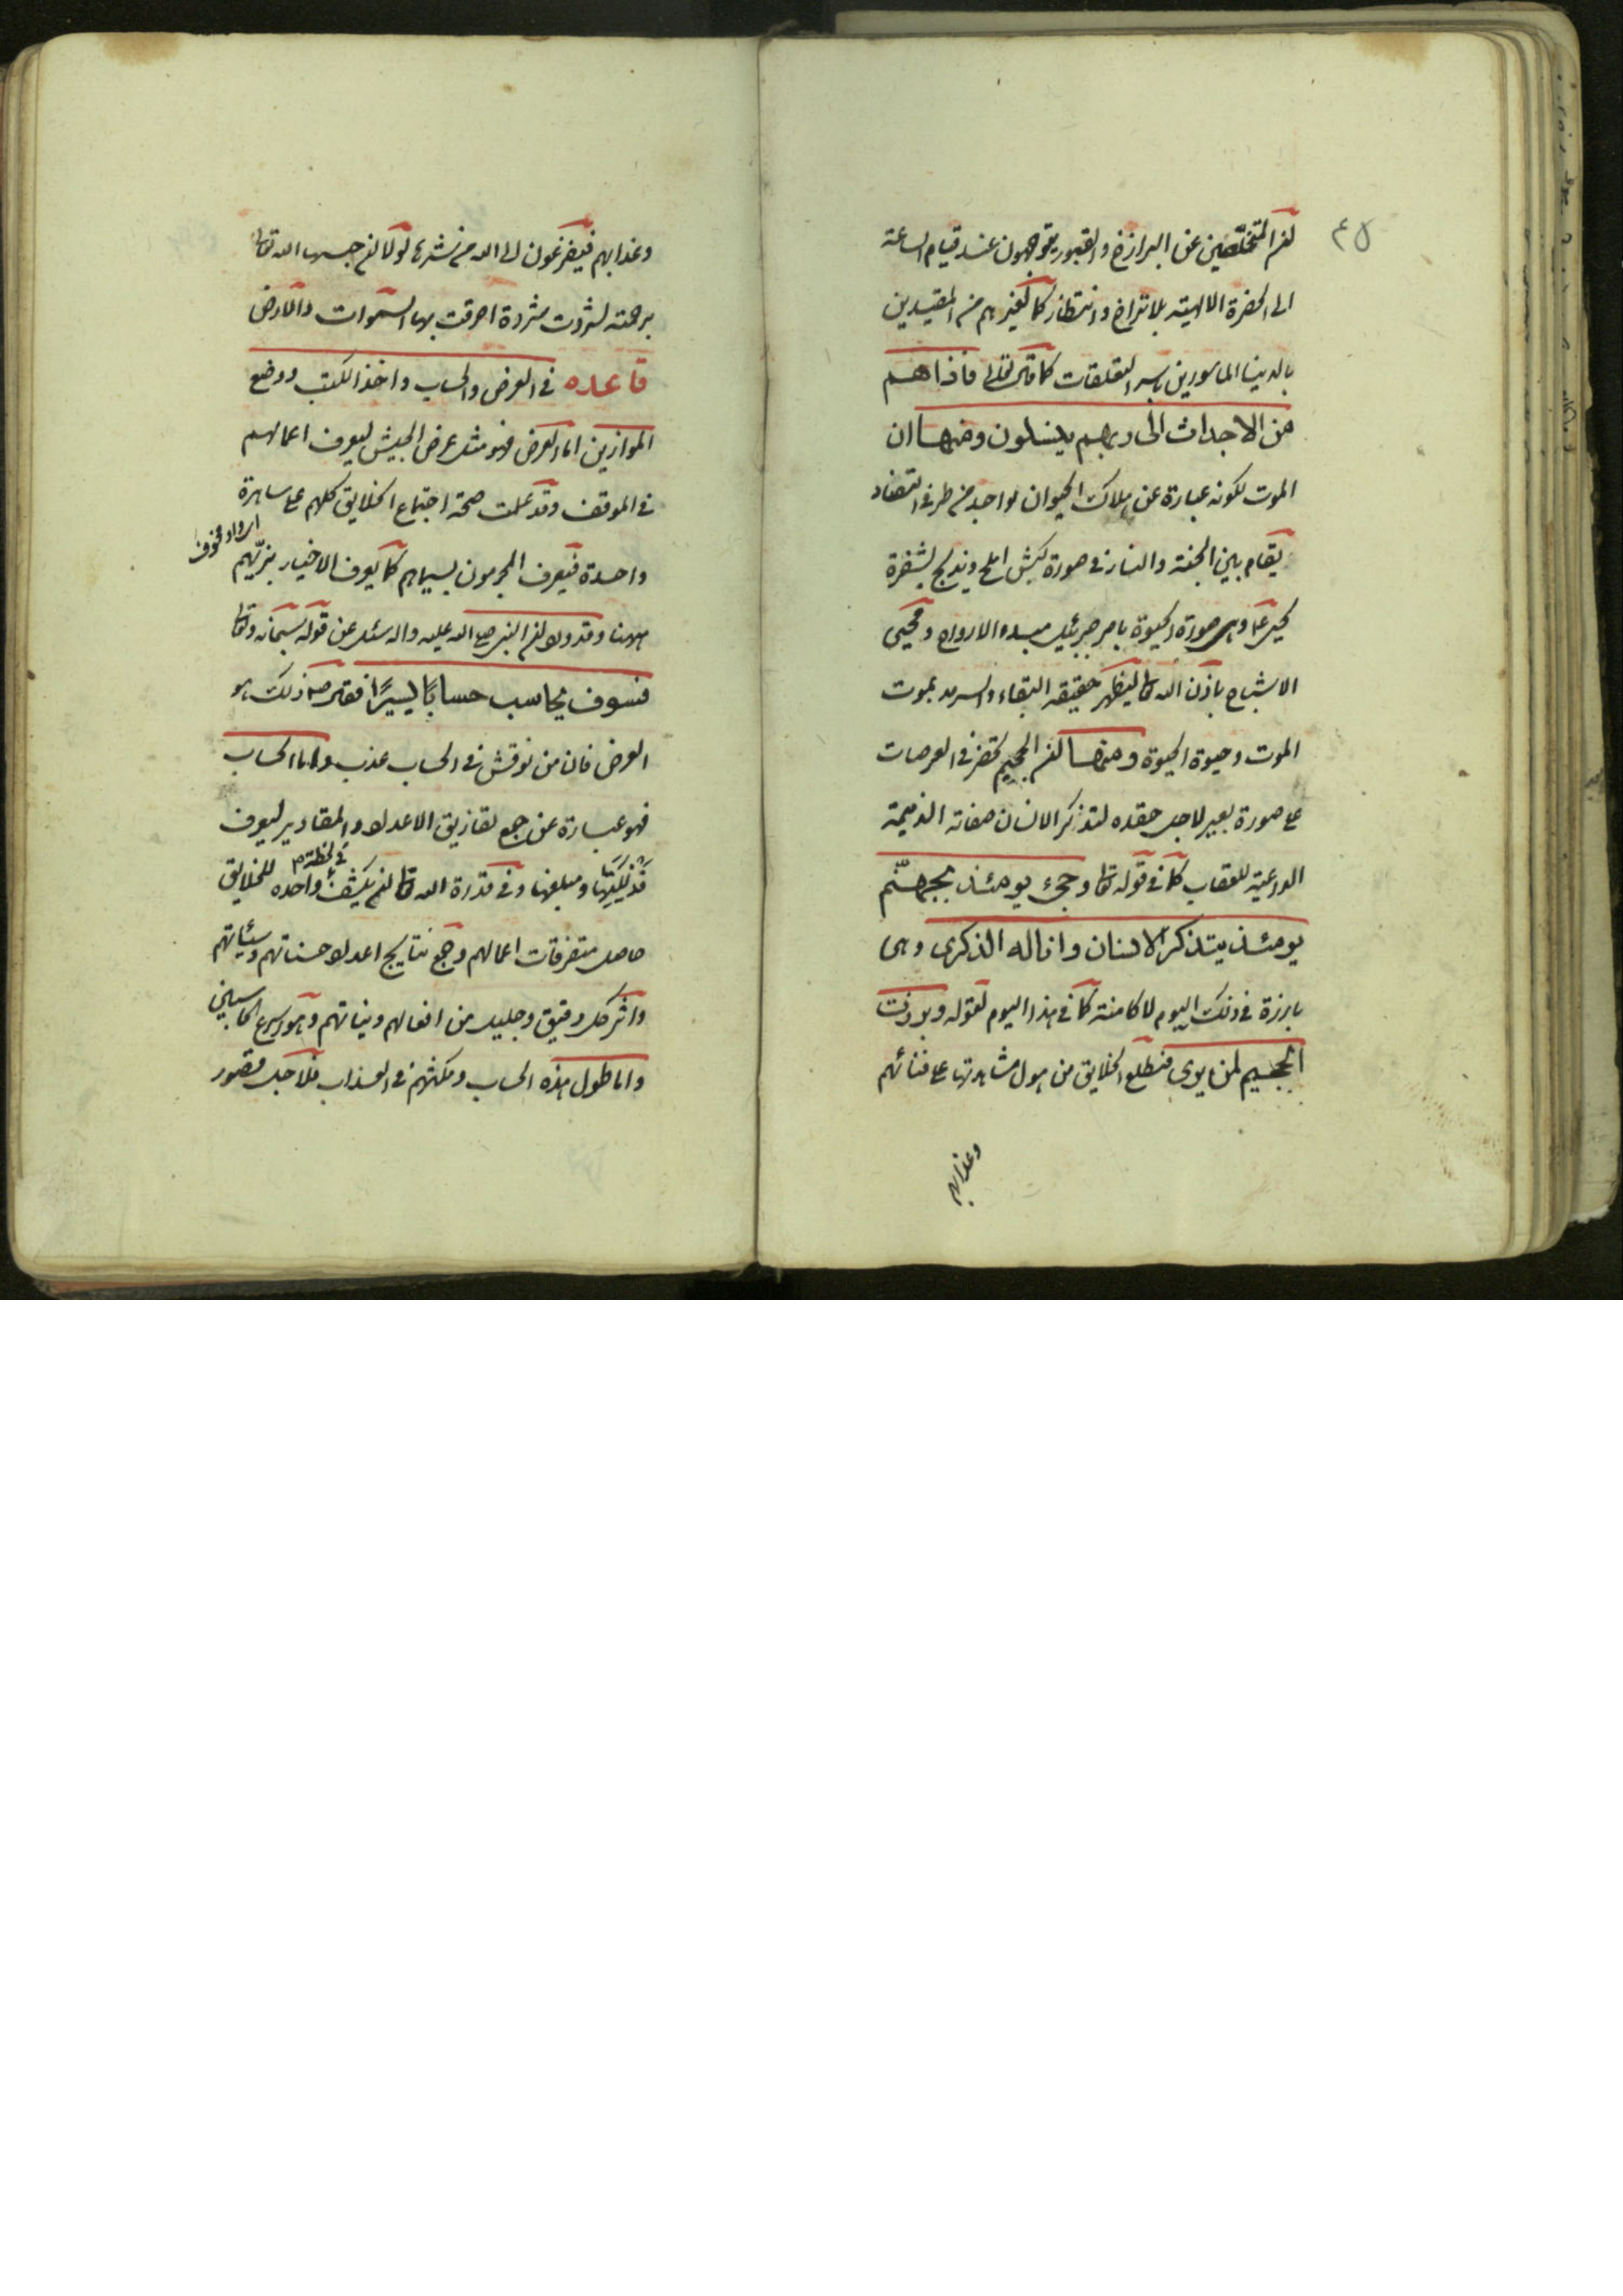 ٤٥
ان المتخلصين عن البرازخ والقبور يتوجهون عند قيام الساعة
الى الحضرة الالهية بلا تراخ وانتظار كما لغيرهم من المقيدين
بالدنيا الماسورين باسر التعلقات كما قال تعالى فاذاهم
من الاجداث الى ربهم ينسلون ومنها ان
الموت لكونه عبارة عن هلاك الحيوان لواحد من طرفى التضاد
يقام بين الجنة والنار فى صورة كبش املح ويذبح بشفرة
يحيى ع وهى صورة الحيوة بامر جبرئيل مبدء الارواح ومحيى
الاشباح باذن الله تعا ليظهر حقيقه البقاء والسرمد بموت
الموت وحيوة الحيوة ومنها ان الجحيم تحضر فى العرصات
على صورة بعير لاجل حقده لتذكر الانسان صفاته الذميمة
الداعية للعقاب كما فى قوله تعا وجىء يومئذ بجهنّم
يومئذ يتذكر الانسان وانا له الذكرى وهى
بارزة فى ذلك اليوم لا كامنة كما فى هذا اليوم لقوله وبرزت
الجحيم لمن يرى فتطلع الخلايق من هول مشاهدتها على فنائهم
وعذابهم
وعذابهم فيضرعون الى الله من شرها لولا ان حبسها الله تعالى
برحمته لشردت شردة احرقت بها السموات والارض
قاعده فى العرض والحساب واخذ الكتب ووضع
الموازين اما العرض فهو مثل عرض الجيش ليعرف اعمالهم
فى الموقف وقد علمت صحة اجتماع الخلايق كلهم على ساهرة
واحدة فيعرف المجرمون بسيماهم كما يعرف الاخيار بزيّهم
ههنا وقد ورد ان النبى صلى الله عليه واله سئل عن قوله سبحانه وتعا
فسوف يحاسب حسابًا يسيرًا فقال ص ذلك هو
العرض فان من نوقش فى الحساب عذب واما الحساب
فهو عبارة عن جمع تفاريق الاعداد والمقادير ليعرف
فذلكتها ومبلغها وفى قدرة الله تعا ان يكشف فى لحظة واحده للخلايق
حاصل متفرقات اعمالهم وجمع نتايج اعداد حسناتهم وسيئاتهم
واثر كل دقيق وجليل من افعالهم ونياتهم وهو اسرع الحاسبين
واما طول هذه الحساب ومكثهم فى العذاب فلاجل قصور